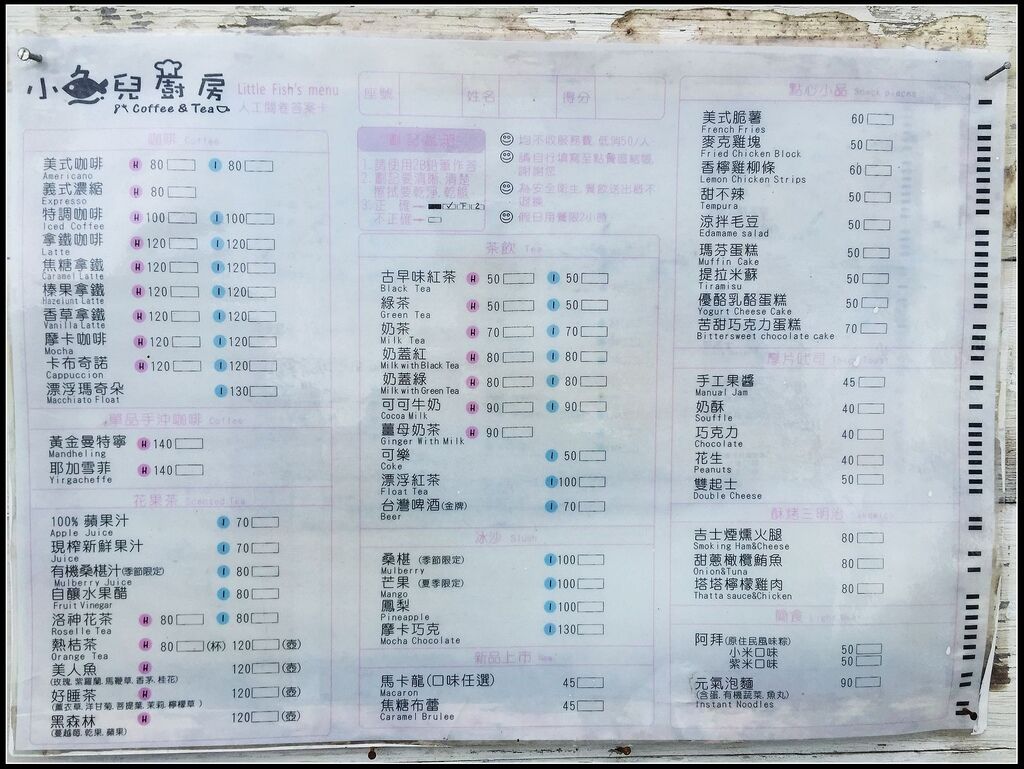 小魚兒廚房
Coffee & Tea
Little Fish's menu
人工閱卷答案卡
座號 姓名 得分
咖啡 Coffee
美式咖啡 H 80 I 80
Americano
義式濃縮 H 80
Expresso
特調咖啡 H 100 I 100
Iced Coffee
拿鐵咖啡 H 120 I 120
Latte
焦糖拿鐵 H 120 I 120
Caramel Latte
榛果拿鐵 H 120 I 120
Hazelunt Latte
香草拿鐵 H 120 I 120
Vanilla Latte
摩卡咖啡 H 120 I 120
Mocha
卡布奇諾 H 120 I 120
Cappuccion
漂浮瑪奇朵 I 130
Macchiato Float
單品手沖咖啡 Coffee
黃金曼特寧 H 140
Mandheling
耶加雪菲 H 140
Yirgacheffe
花果茶 Scented Tea
100% 蘋果汁 I 70
Apple Juice
現榨新鮮果汁 I 70
Juice
有機桑椹汁(季節限定) I 80
Mulberry Juice
自釀水果醋 I 80
Fruit Vinegar
洛神花茶 H 80 I 80
Roselle Tea
熱桔茶 H 80 (杯) 120 (壺)
Orange Tea
美人魚 H 120 (壺)
(玫瑰, 紫羅蘭, 馬鞭草, 香茅, 桂花)
好睡茶 H 120 (壺)
(薰衣草, 洋甘菊, 菩提葉, 茉莉, 檸檬草)
黑森林 H 120 (壺)
(蔓越莓, 乾果, 蘋果)
1. 請使用2B鉛筆作答
2. 劃記清晰, 清楚
擦拭要乾淨, 乾脆
3. 正 確
不正確
均不收服務費, 低消50/人
請自行填寫至點餐區結帳,
謝謝您
為安全衛生, 餐飲送出恕不
退換
假日用餐限2小時
茶飲 Tea
古早味紅茶 H 50 I 50
Black Tea
綠茶 H 50 I 50
Green Tea
奶茶 H 70 I 70
Milk Tea
奶蓋紅 H 80 I 80
Milk with Black Tea
奶蓋綠 H 80 I 80
Milk with Green Tea
可可牛奶 H 90 I 90
Cocoa Milk
薑母奶茶 H 90
Ginger With Milk
可樂 I 50
Coke
漂浮紅茶 I 100
Float Tea
台灣啤酒(金牌) I 70
Beer
冰沙 Slush
桑椹 (季節限定) I 100
Mulberry
芒果 (夏季限定) I 100
Mango
鳳梨 I 100
Pineapple
摩卡巧克 I 130
Mocha Chocolate
新品上市 New
馬卡龍(口味任選) 45
Macaron
焦糖布蕾 45
Caramel Brulee
點心小品 Snack pieces
美式脆薯 60
French Fries
麥克雞塊 50
Fried Chicken Block
香檸雞柳條 50
Lemon Chicken Strips
甜不辣 50
Tempura
涼拌毛豆 50
Edamame salad
瑪芬蛋糕 50
Muffin Cake
提拉米蘇 50
Tiramisu
優酪乳酪蛋糕 50
Yogurt Cheese Cake
苦甜巧克力蛋糕 70
Bittersweet chocolate cake
厚片吐司
手工果醬 45
Manual Jam
奶酥 40
Souffle
巧克力 40
Chocolate
花生 40
Peanuts
雙起士 50
Double Cheese
酥烤三明治
吉士煙燻火腿 80
Smoking Ham&Cheese
甜蔥橄欖鮪魚 80
Onion&Tuna
塔塔檸檬雞肉 80
Thatta sauce&Chicken
簡食
阿拜(原住民風味粽)
小米口味 50
紫米口味 50
元氣泡麵 90
(含蛋, 有機蔬菜, 魚丸)
Instant Noodles